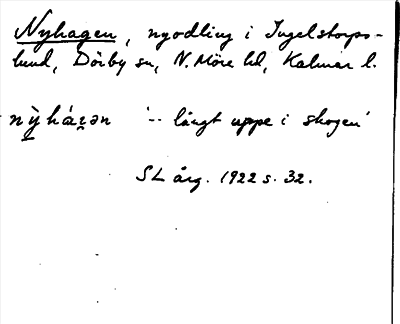 Nyhagen, nyodling i Ingelstorps-
lund, Dörby sn, N. Möre hd, Kalmar l.
nỳháꞬən '-- långt uppe i skogen'
SL årg. 1922 s. 32.